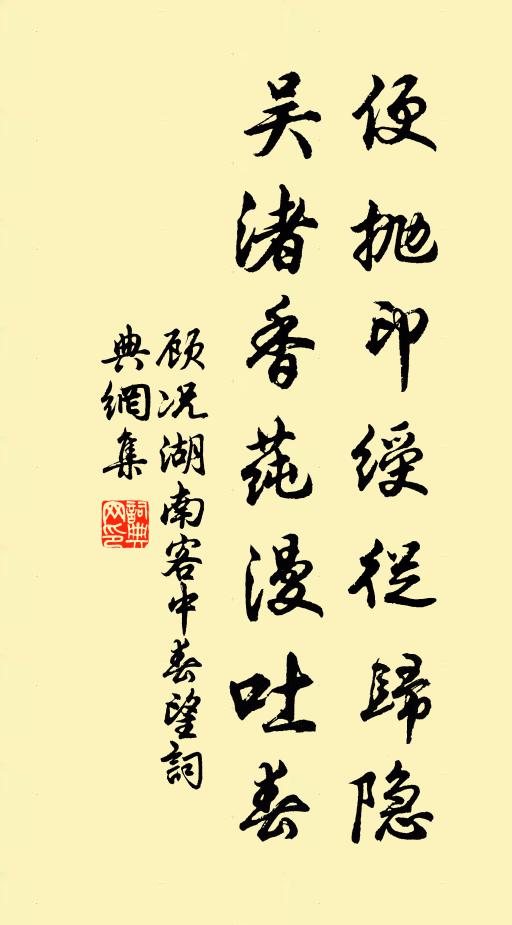 便抛印綬從歸隐
吴渚香莼漫吐春
顾况湖南客中春望詞
典網集
詞典网印